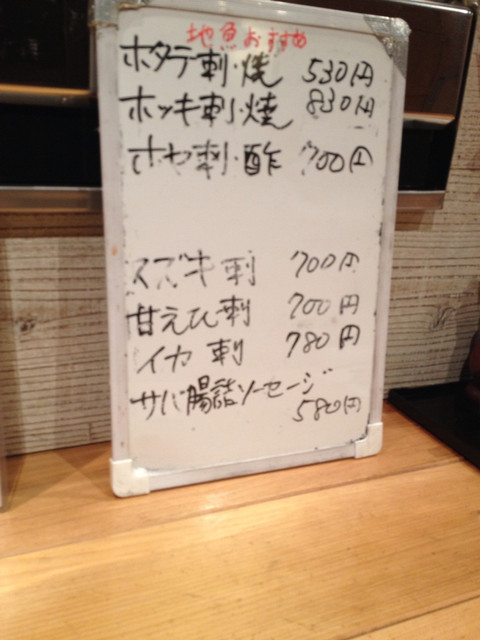 地魚おすすめ
ホタテ刺・焼 530円
ホッキ刺・焼 830円
ホヤ刺・酢 700円
スズキ刺 700円
甘えび刺 700円
イカ刺 780円
サバ腸詰ソーセージ
580円